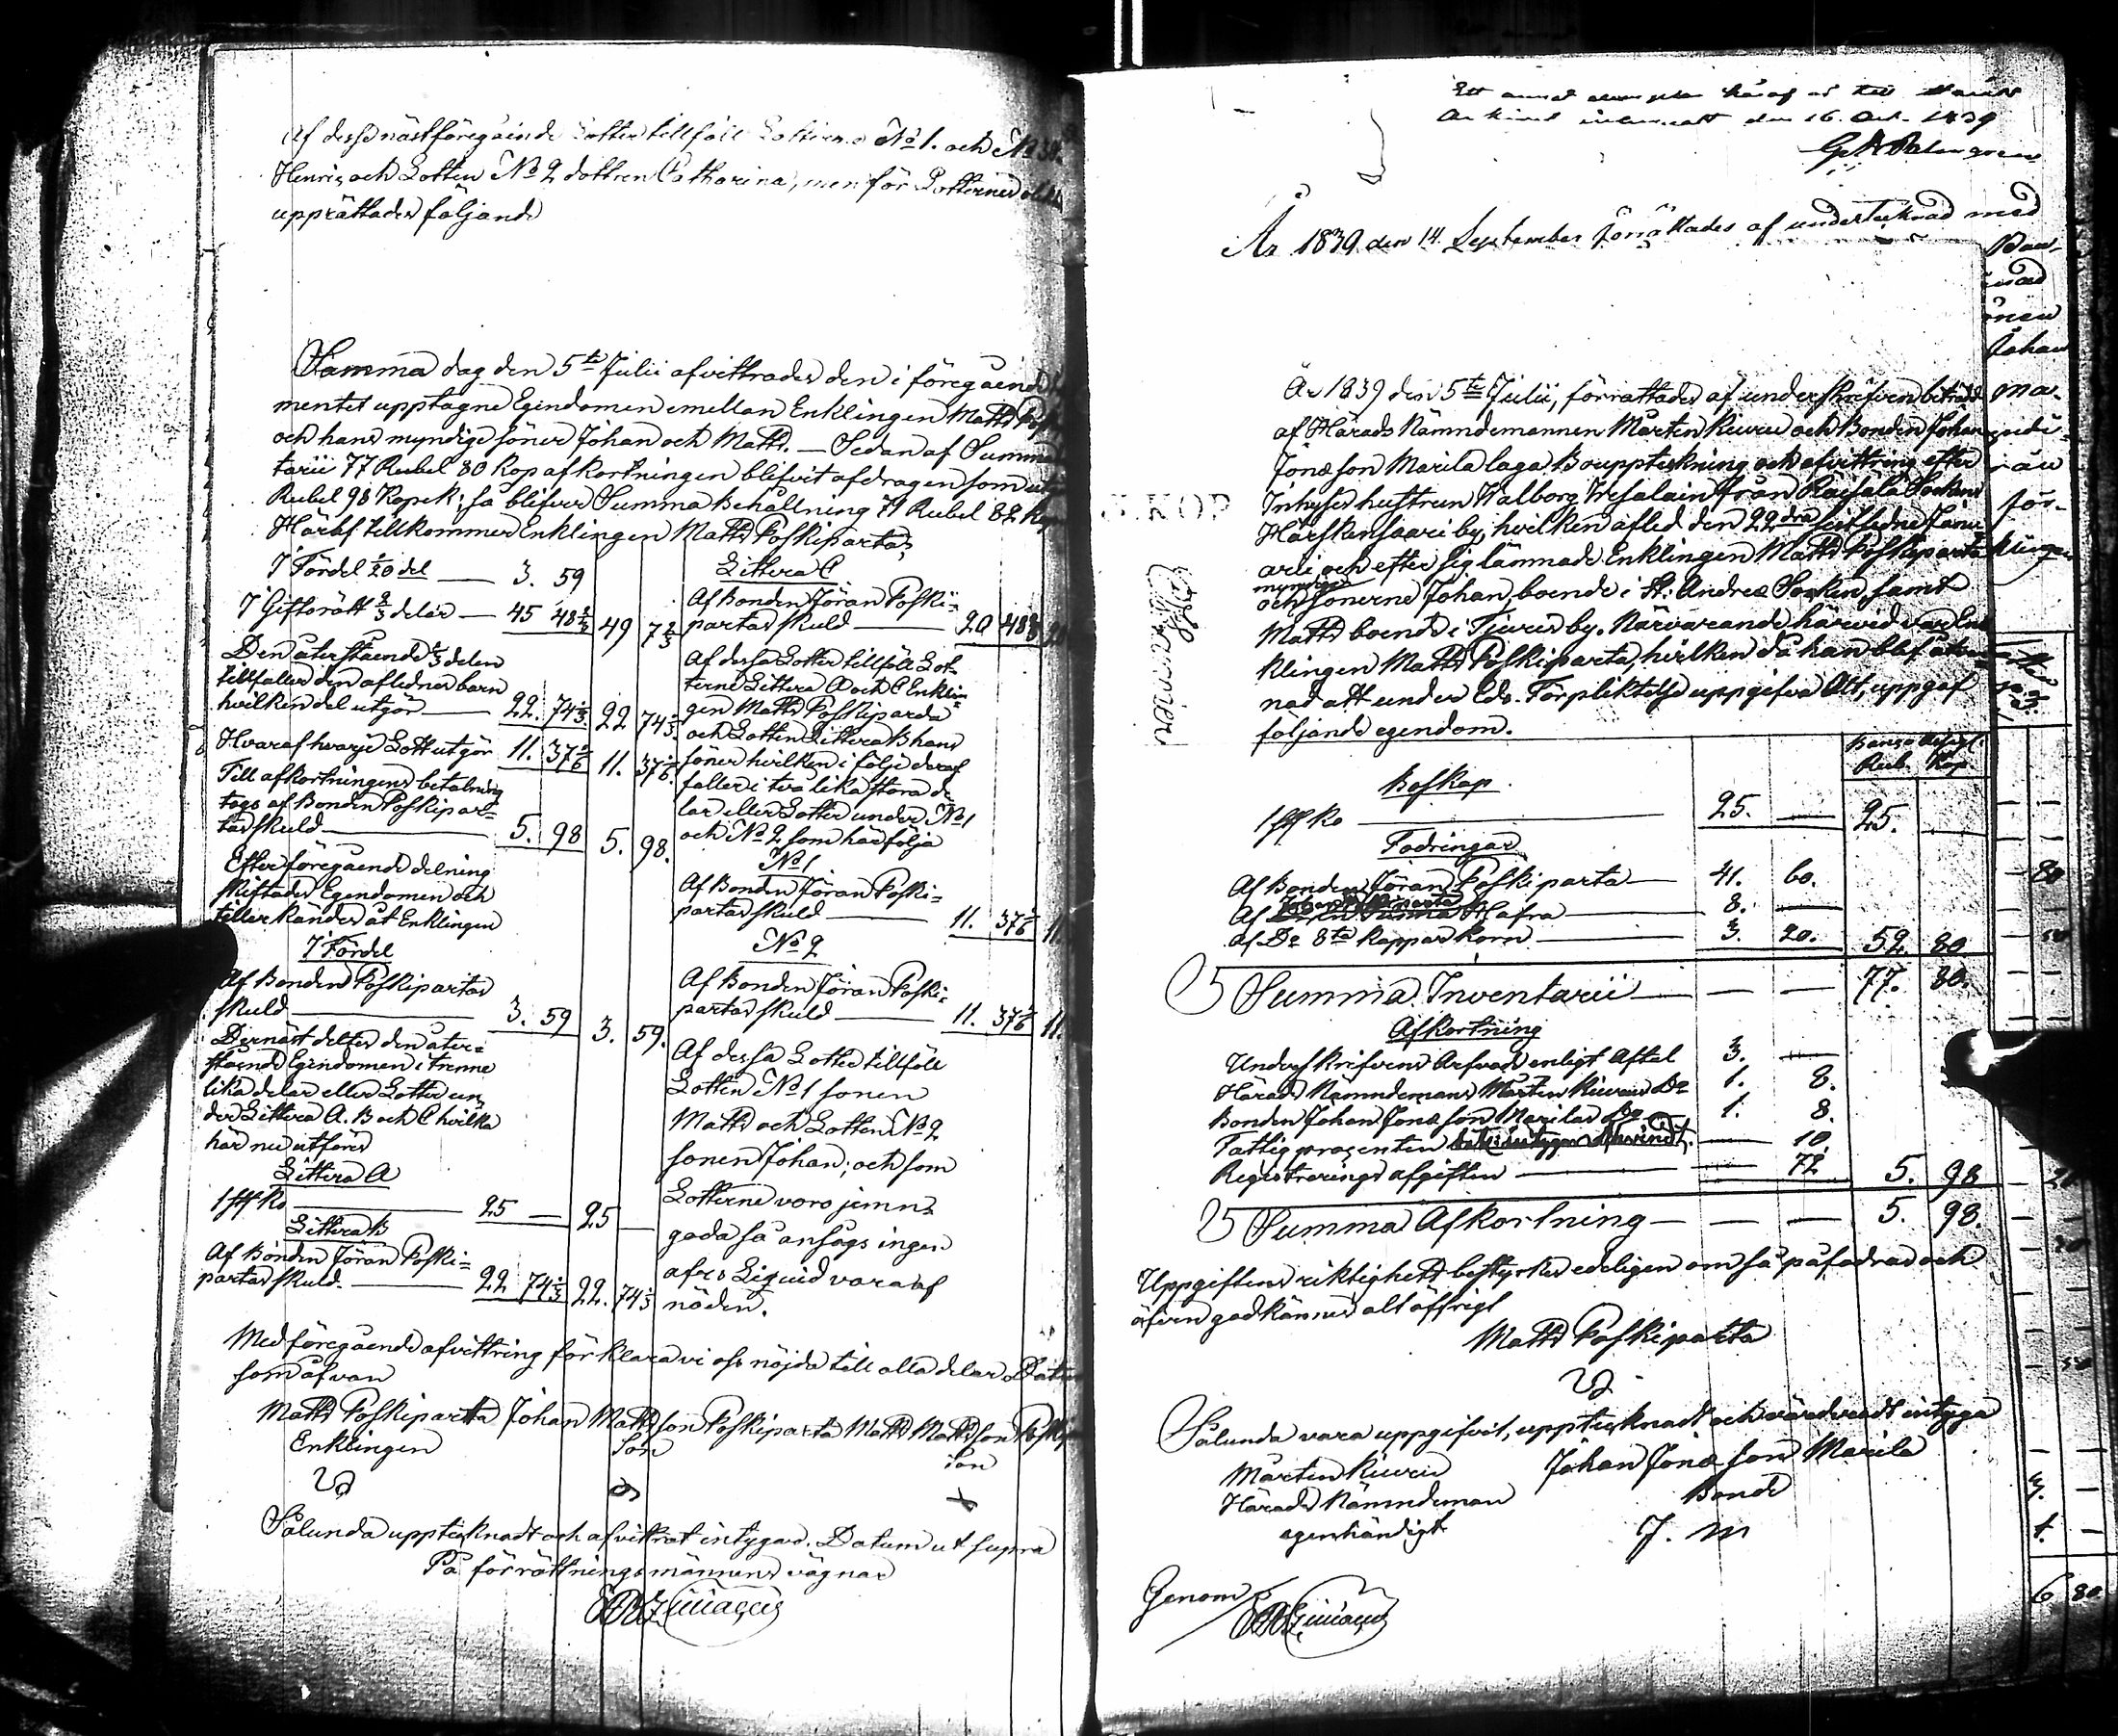 Af dessa nästföregående Lotter tillföll Lotterna No 1. och No 3
Henric och Lotten No 2 dottren Catharina, men för Lotternes
upprättades följande
Samma dag den 5te Julii afvittrades den i föregående
mentet upptagne Egendomen emellan Enklingen Matts
och hans myndige söner Johan och Matts. — Sedan af Summa
tarii 77 Rubel 80 Kop afkortningen blifvit afdragen som
Rubel 98 Kopek; så blifver Summa Behållning 71 Rubel 82 Kop
Häraf tillkommer Enklingen Matts Poskiparta,
I Fördel 1/20 del — 3. 59
I Giftorätt 2/3 delar — 45 48 2/3 49 7 2/3
Den återstående 1/3 delen
tillfaller den aflednes barn
hvilken del utgör — 22. 74 1/3. 22 74 1/3
Hvaraf hvarje Lott utgör 11. 37 1/6 11. 37 1/6.
Till afkortningens betalning
togs af Bonden Poskipar-
tas skuld — 5. 98 5. 98.
Efter föregående delning
skiftades Egendomen och
tillerkändes åt Enklingen
I Fördel
Af Bonden Poskipartas
skuld — 3. 59 3. 59.
Dernäst deltes den åter-
stående Egendomen i trenne
lika delar eller Lotter un
der Littera A. B och C hvilka
här nu utföres
Littera A
1 st Ko — 25 — 25 —
Littera B
Af Bonden Jöran Poski-
partas skuld. — 22 74 1/3 22. 74 1/3
Littera C
Af Bonden Jöran Poski-
partas skuld — 20 48
Af dessa Lotter tillföll Lot-
terne Littera A och C Enklin-
gen Matts Poskiparta
och Lotten Littera B hans
söner hvilken i följe deraf
faller i två lika stora de
lar eller Lotter under No 1
och No 2 som här följa
No 1
Af Bonden Jöran Poski-
partas skuld — 11. 37 1/6 11.
No 2
Af Bonden Jöran Poski-
partas skuld — 11. 37 1/6 11.
Af dessa Lotter tillföll
Lotten No 1 sonen
Matts och Lotten No 2
sonen Johan; och som
Lotterne voro jemn-
goda så ansågs ingen
Liquid vara af
nöden.
Med föregående afvittring förklara vi oss nöjda till alla delar. Datum
som ofvan
Matts Poskiparta Johan Mattsson Poskiparta Matts Mattsson
Enklingen Son Son
Sålunda upptecknadt och afvittrat intygas. Datum ut supra
På förrättningsmännens vägnar
Ett annat exemplar häraf är till
den 16. Oct. 1839
År 1839 den 14 September förrättades af undertecknad med
År 1839 den 5te Julii, förrättades af underskrifven biträdd
af Härads Nämndemannen Mårten Kiuru och Bonden Johan
Jonasson Marila laga Bouppteckning och afvittring efter
Inhyses hustrun Walborg från Räisälä Socken
Härskensaari by, hvilken afled den 22dra sistledne Janu
arii och efter sig lämnade Enklingen Matts Poskiparta
myndige
och sönerne Johan, boende i St. Andreæ Socken, samt
Matts boende i Tjuris by. Närvarande härvid var En
klingen Matts Poskiparta, hvilken då han blef
nad att under Eds. Förpliktelse uppgifva Allt, uppgaf
följande egendom.
Rub. Kop
Boskap.
1 st Ko — 25. — 25. —
Fodringar
Af Bonden Jöran Poskiparta — 41. 60.
Af Hafra — 8. —
af Do 8ta Kappar Korn — 3. 20. 52. 80
Summa Inventarii — — — 77. 80.
Afkortning
Underskrifvens Arfvode enligt Aftal 3. —
Härads Nämndemans Mårten Kiurus Do 1. 8.
Bonden Johan Jonasson Marilas Do 1. 8.
Fattigprocenten — 10.
Registrerings afgiften — — 72 5. 98
Summa Afkortning — — — 5. 98.
Uppgiftens riktighett bestyrkes edeligen om så påfodras och
äfven godkännes alt öffrigt
Matts Poskiparta
Sålunda vara uppgifvit, upptecknadt och värderadt intyga
Mårten Kiuru Johan Jonasson Marila
Härads Nämndeman Bonde
egenhändigt J. M
Genom